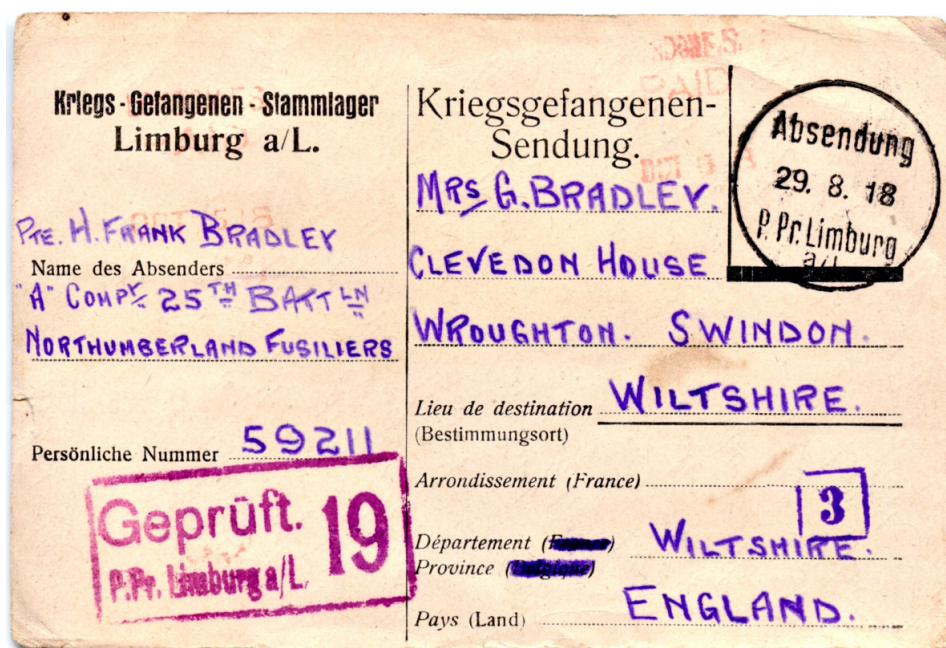 Kriegs-Gefangenen-Stammlager
Limburg a/L.
PTE. H. FRANK BRADLEY
Name des Absenders
"A" COMPY 25TH BATTLN
NORTHUMBERLAND FUSILIERS
Persönliche Nummer 59211
Geprüft. 19
P.Pr. Limburg a/L.
Kriegsgefangenen-
Sendung.
PAID
Absendung
29. 8. 18
P. Pr. Limburg
a/L
MRS G. BRADLEY.
CLEVEDON HOUSE
WROUGHTON. SWINDON.
Lieu de destination WILTSHIRE.
(Bestimmungsort)
Arrondissement (France)
3
Département (France) WILTSHIRE.
Province (Belgique)
Pays (Land) ENGLAND.